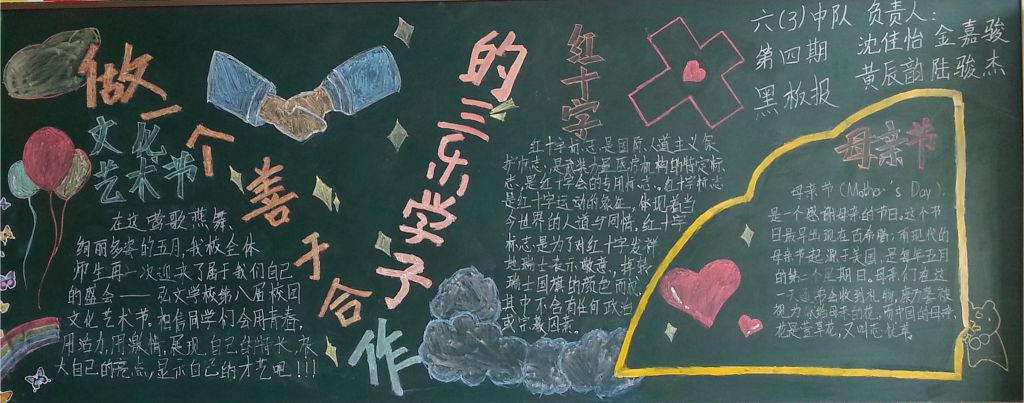 做一个善于合作的三乐学子
文化
艺术节
在这莺歌燕舞、
绚丽多姿的五月,我校全体
师生再一次迎来了属于我们自己
的盛会——弘文学校第八届校园
文化艺术节。相信同学们会用青春,
用活力,用激情,展现自己的特长,张
大自己的亮点,显示自己的才艺吧!!!
红十字
红十字标志是国际人道主义保
护标志,是武装力量医疗机构的特定标
志,是红十字会的专用标志。红十字标志
是红十字运动的象征,体现着当
今世界的人道与同情。红十字
标志是为了对红十字发祥
地瑞士表示敬意,将
瑞士国旗的颜色而成
其中不含有任何政治
或宗教因素。
六(3)中队 负责人:
第四期 沈佳怡 金嘉骏
黑板报 黄辰韵 陆骏杰
母亲节
母亲节(Mother's Day),
是一个感谢母亲的节日。这个节
日最早出现在古希腊;而现代的
母亲节起源于美国,是每年五月
的第二个星期日。母亲们在这
一天通常会收到礼物,康乃馨被
视为献给母亲的花,而中国的母亲
花是萱草花,又叫忘忧草。